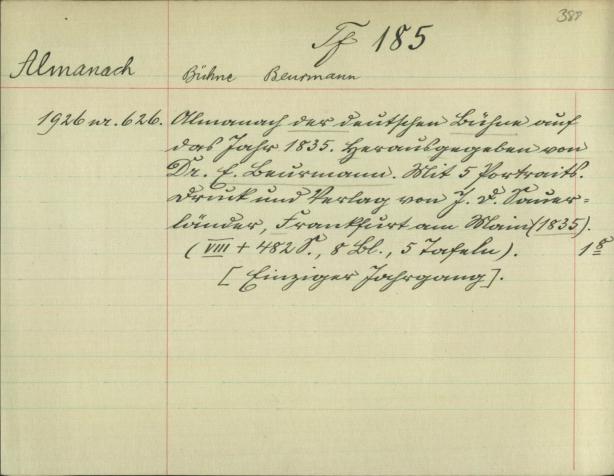 388
Tf 185
Almanach
Bühne Beurmann
1926 nr. 626. Almanach der deutschen Bühne auf
das Jahr 1835. Herausgegeben von
Dr. E. Beurmann. Mit 5 Portraits.
Druck und Verlag von J. D. Sauer=
länder, Frankfurt am Main (1835).
(VIII + 482 S., 8 Bl., 5 Tafeln). 1 8
[Einziger Jahrgang].